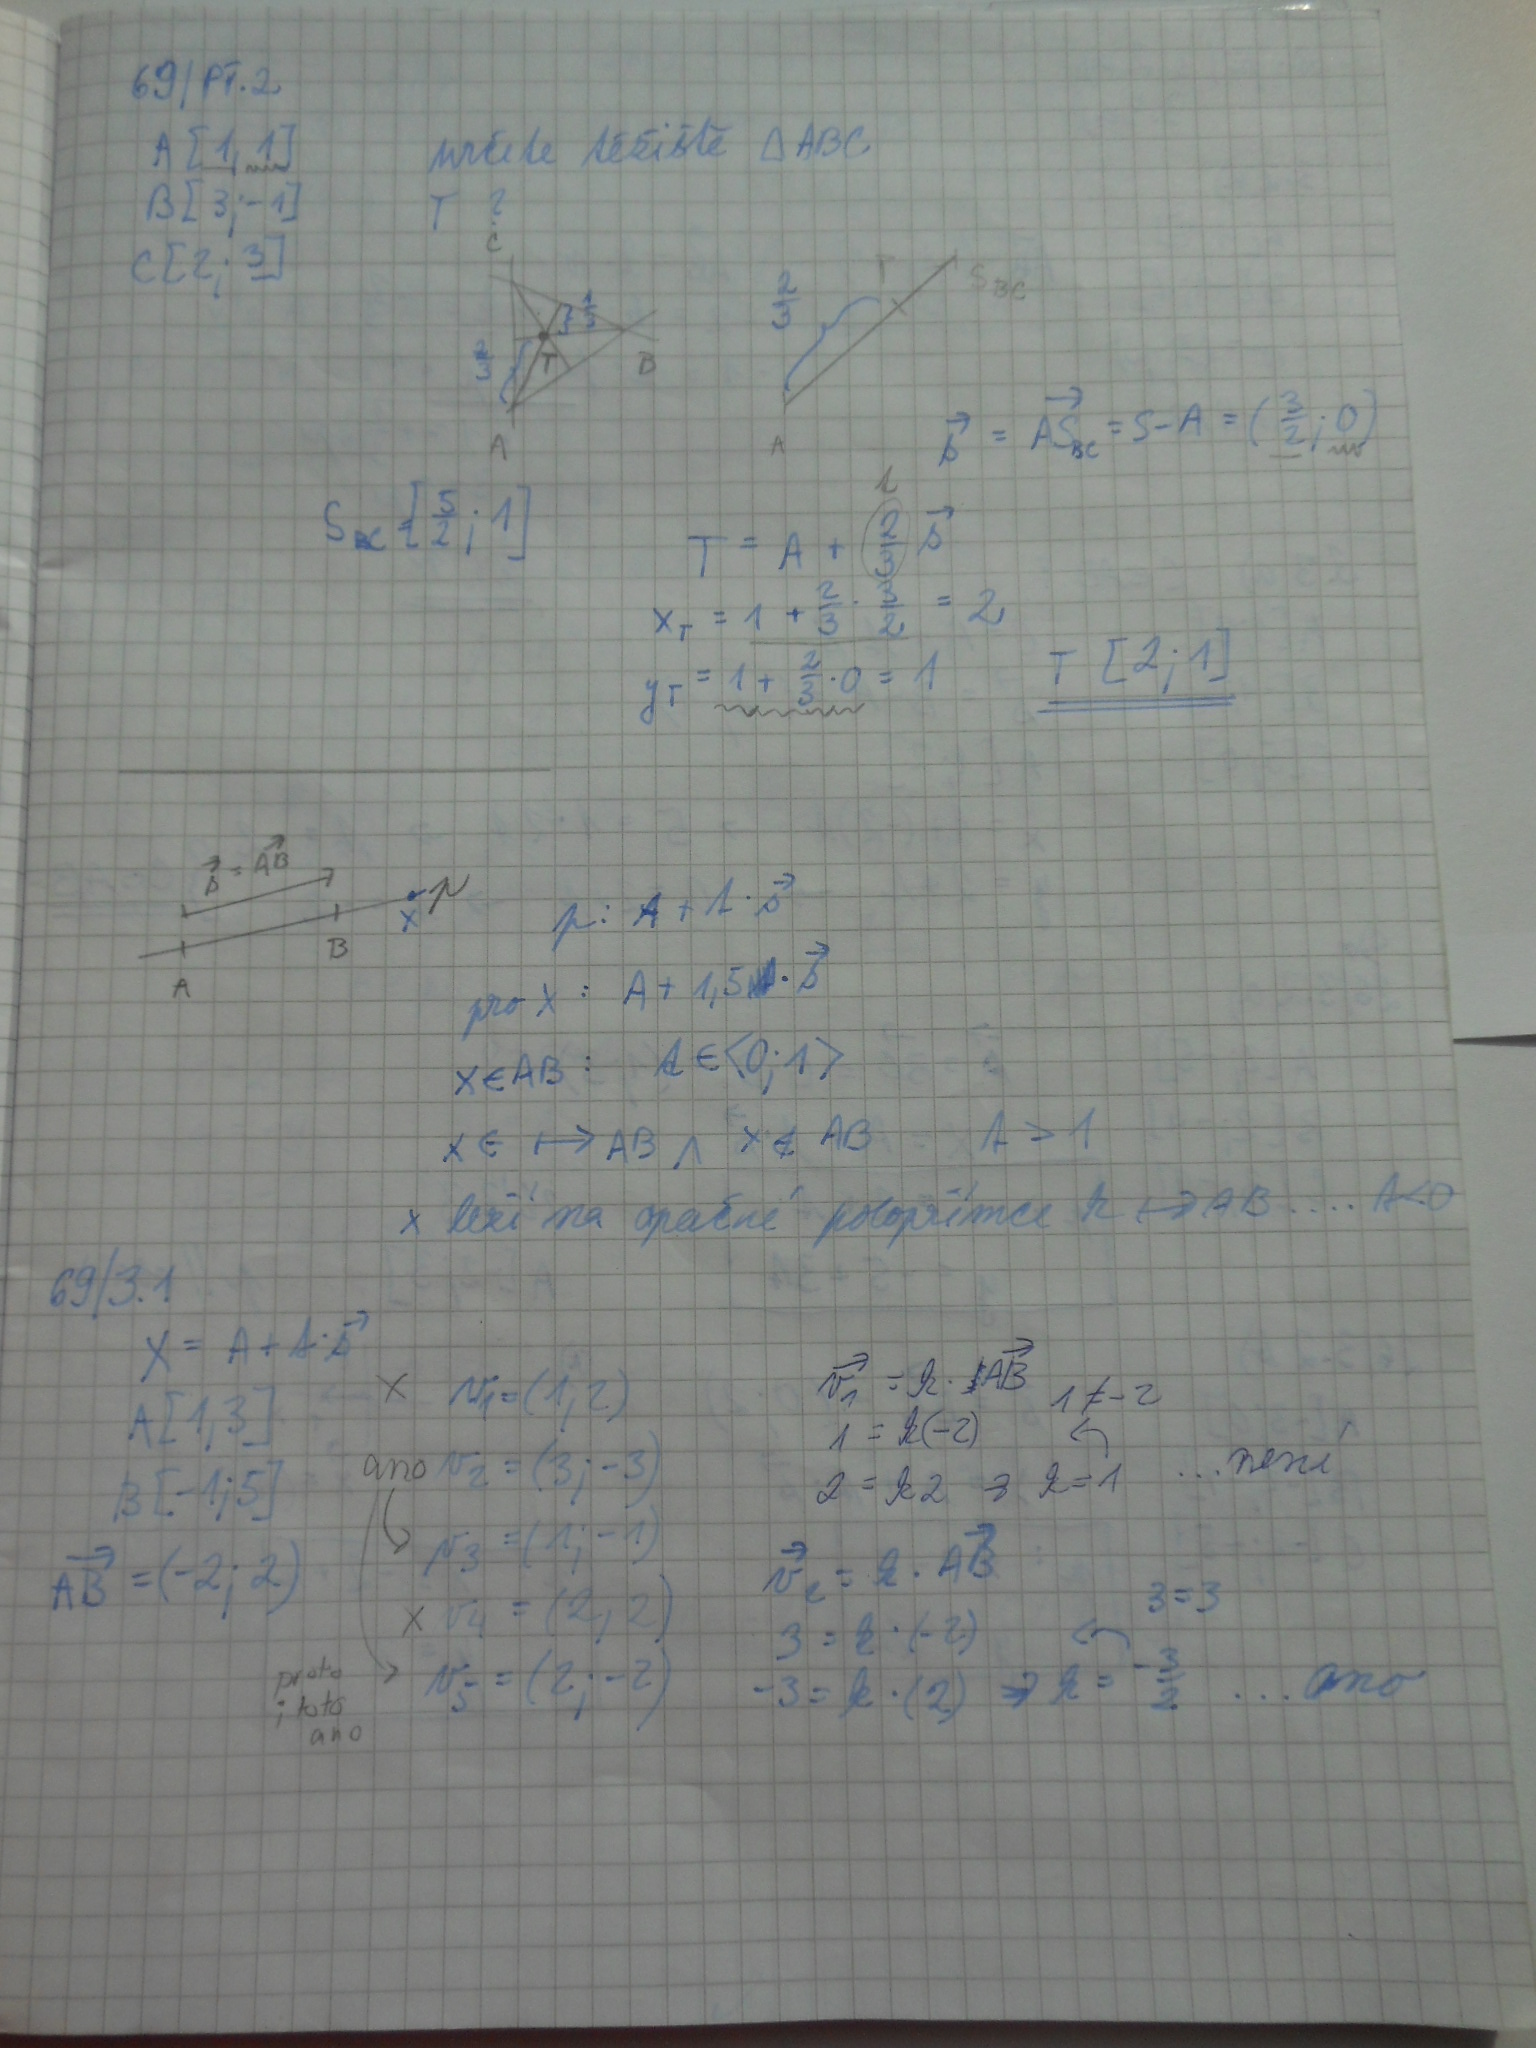 69/PŤ.2
A[1,1] určete těžiště △ABC
B[3;-1] T ?
C[2;3]
C
2/3 1/3
T B
A
2/3 T S_BC
A
s⃗ = AS_BC⃗ = S-A = (3/2;0)
S_BC = [5/2;1]
t
T = A + 2/3 s⃗
x_T = 1 + 2/3 · 3/2 = 2
y_T = 1 + 2/3 · 0 = 1 T [2;1]
s⃗ = AB⃗
A B X p
p: A + t · s⃗
pro X : A + 1,5 · s⃗
X∈AB : t∈⟨0;1⟩
X∈ ↦AB ∧ X∉AB t > 1
X leží na opačné polopřímce k ↦AB .... t<0
69/3.1
X = A + t·s⃗
A[1,3]
B[-1;5]
AB⃗ = (-2;2)
X v₁ = (1;2)
ano v₂ = (3;-3)
v₃ = (1;-1)
X v₄ = (2;2)
v₅ = (2;-2)
proto
i toto
ano
v₁⃗ = k · AB⃗
1 = k(-2) 1≠-2
2 = k2 ⇒ k=1 ...není
v₂⃗ = k · AB⃗
3 = k·(-2) 3=3
-3 = k·(2) ⇒ k = -3/2 ... ano